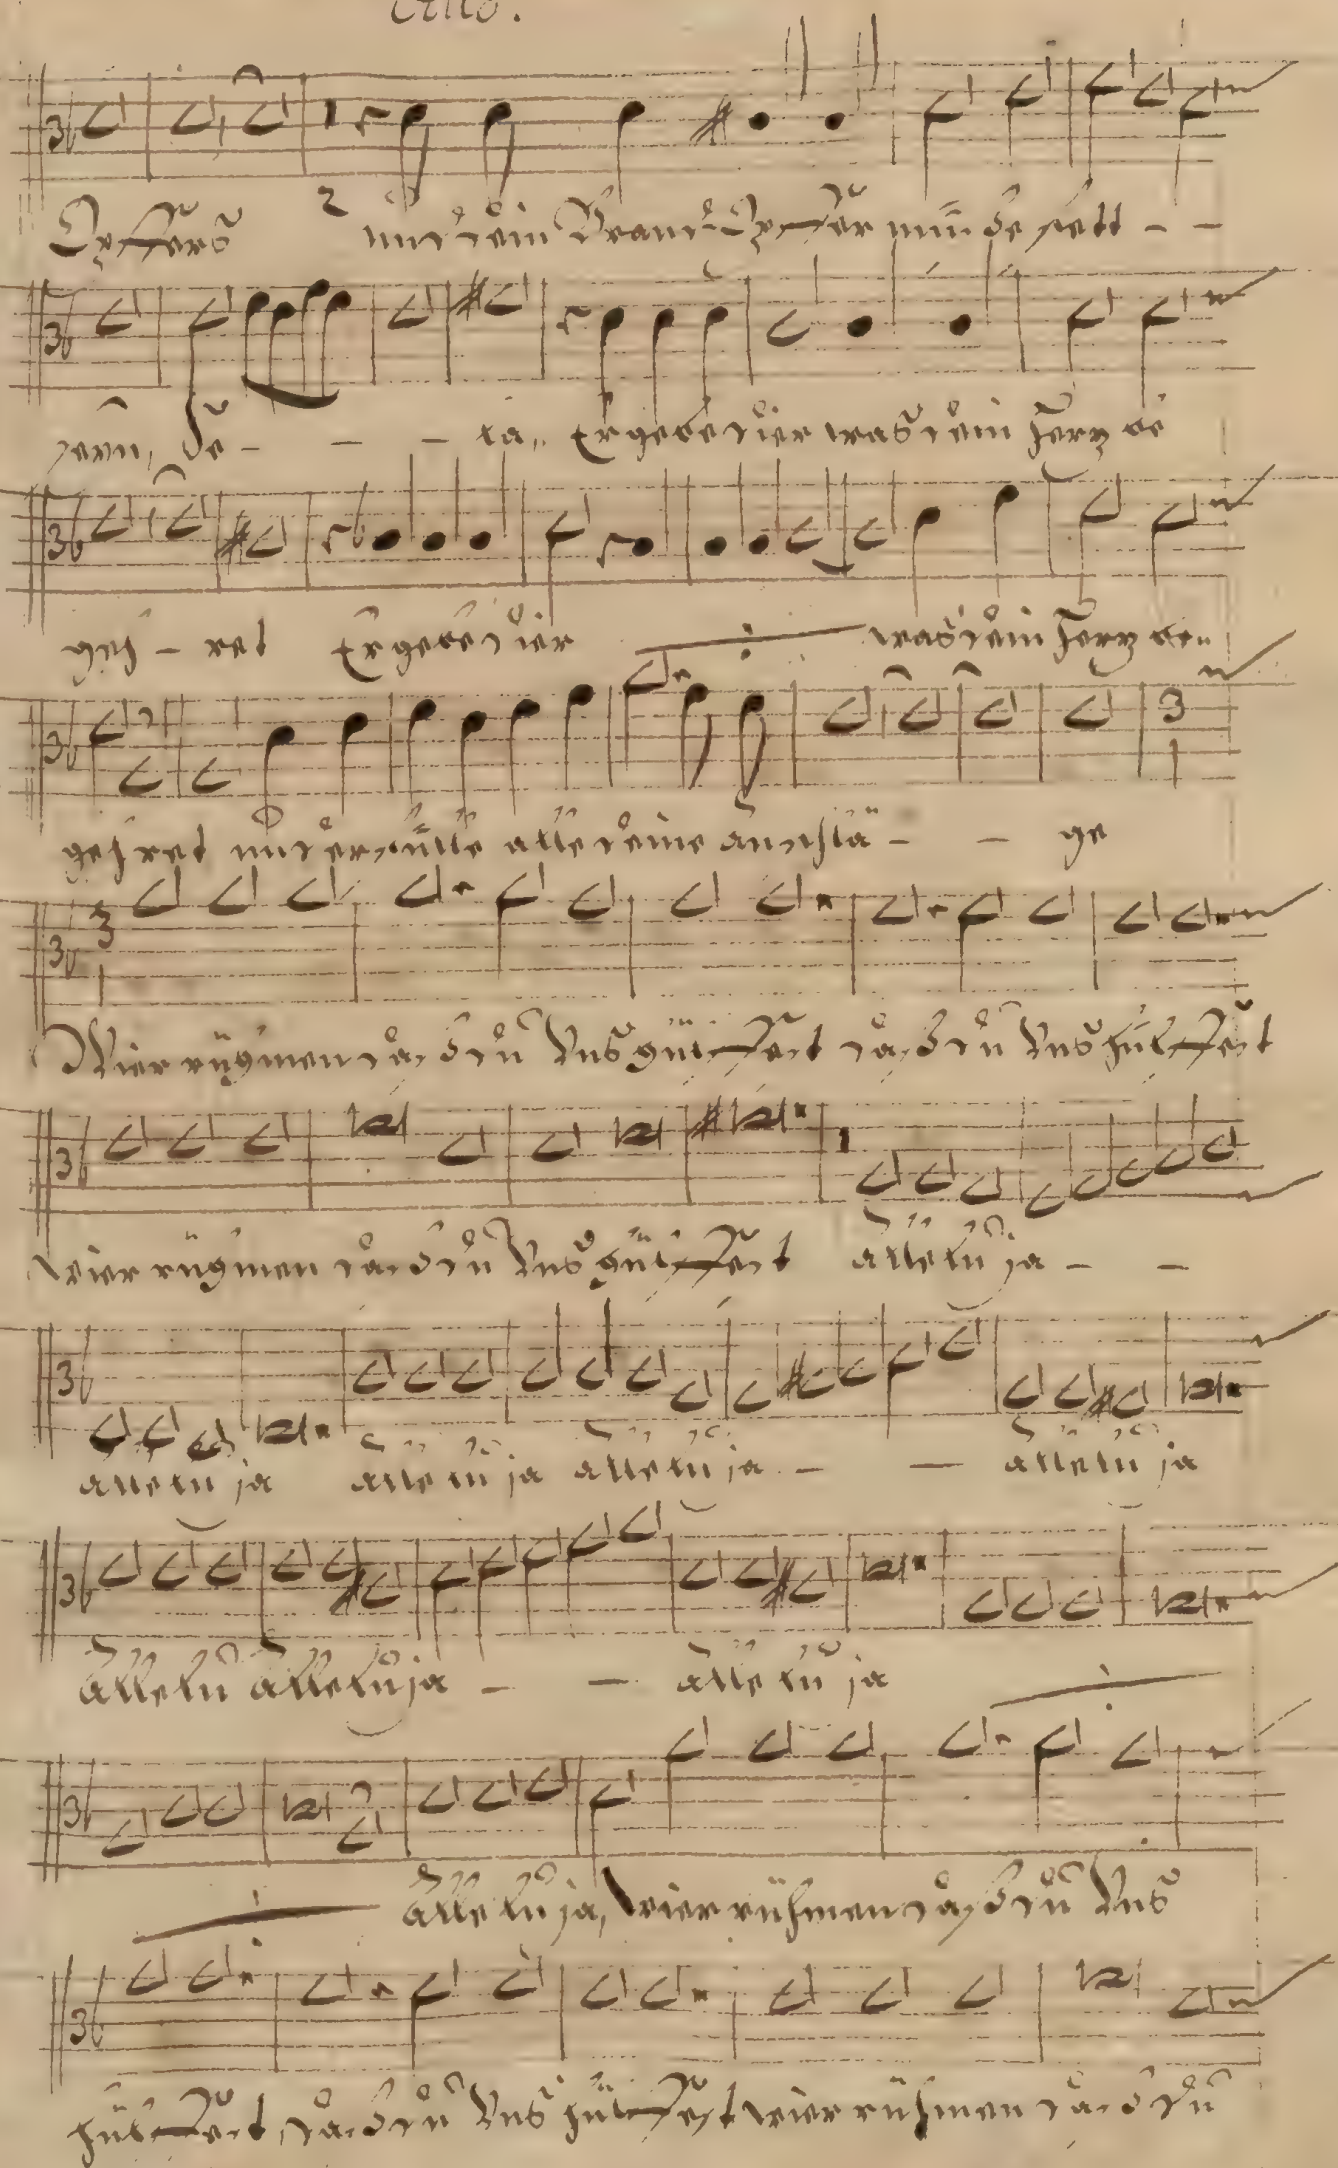 Alto.
Opffers 2 und dein Brand-Opffer müße fett - -
seyn, Se - - - la, Er gebe dier was dein Hertz be
geh - ret Er gebe dier was dein Hertz be
gehret und erfülle alle deine anschlä - - ge
Wier rühmen daß du Uns hülffest daß du Uns hülffest
wier rühmen daß du Uns hülffest alleluja - -
alleluja alleluja alleluja - - alleluja
allelu alleluja - - alleluja
alleluja, wier rühmen daß du Uns
hülffest, daß du Uns hülffest wier rühmen daß du